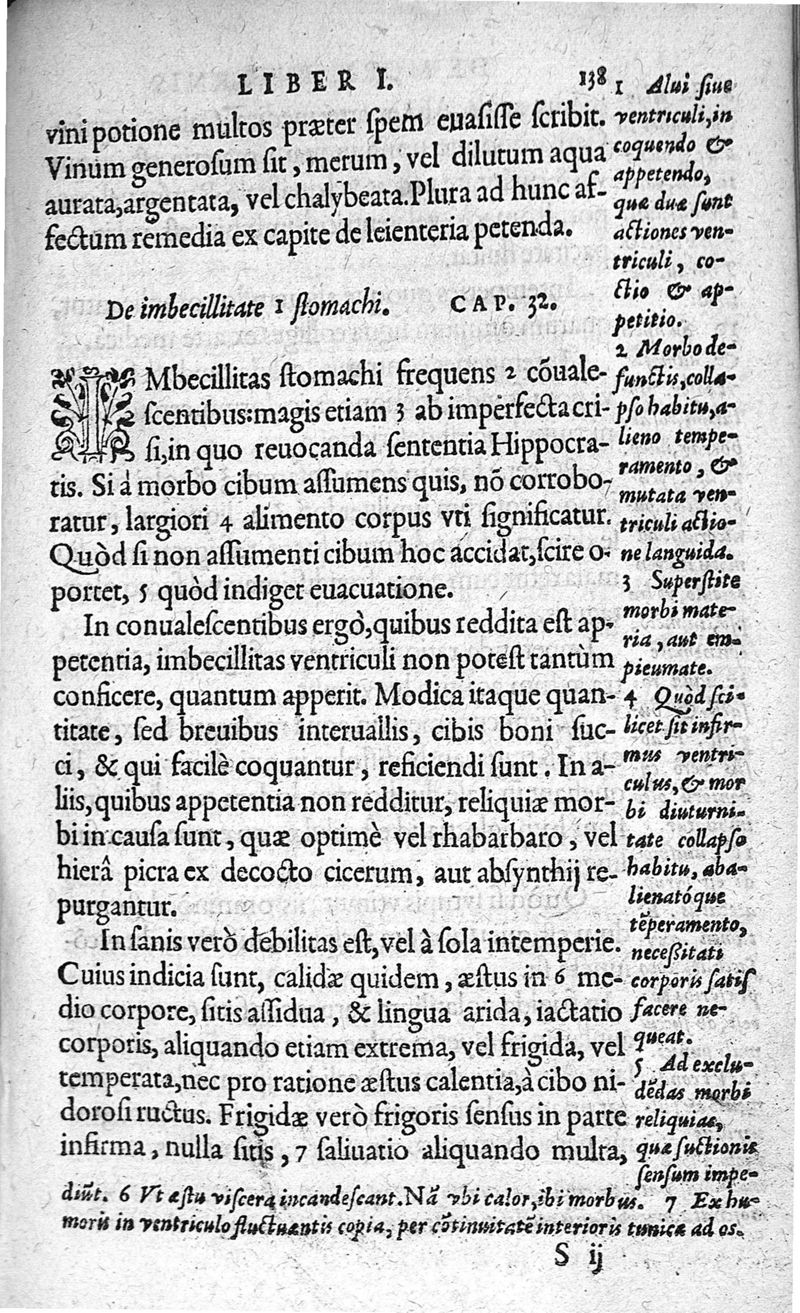 LIBER I. 138
vini potione multos præter ſpem euaſiſſe ſcribit.
Vinum generoſum ſit, merum, vel dilutum aqua
aurata, argentata, vel chalybeata. Plura ad hunc af-
fectum remedia ex capite de leienteria petenda.
De imbecillitate 1 ſtomachi. CAP. 32.
IMbecillitas ſtomachi frequens 2 cõuale-
ſcentibus: magis etiam 3 ab imperfecta cri-
ſi, in quo reuocanda ſententia Hippocra-
tis. Si á morbo cibum aſſumens quis, nõ corrobo-
ratur, largiori 4 alimento corpus vti ſignificatur.
Quòd ſi non aſſumenti cibum hoc accidat, ſcire o-
portet, 5 quòd indiget euacuatione.
In conualeſcentibus ergò, quibus reddita eſt ap-
petentia, imbecillitas ventriculi non poteſt tantùm
conficere, quantum apperit. Modica itaque quan-
titate, ſed breuibus interuallis, cibis boni ſuc-
ci, & qui facilè coquantur, reficiendi ſunt. In a-
liis, quibus appetentia non redditur, reliquiæ mor-
bi in cauſa ſunt, quæ optimè vel rhabarbaro, vel
hierâ picra ex decocto cicerum, aut abſynthij re-
purgantur.
In ſanis verò debilitas eſt, vel à ſola intemperie.
Cuius indicia ſunt, calidæ quidem, æſtus in 6 me-
dio corpore, ſitis aſſidua, & lingua arida, iactatio
corporis, aliquando etiam extrema, vel frigida, vel
temperata, nec pro ratione æſtus calentia, à cibo ni-
doroſi ructus. Frigidæ verò frigoris ſenſus in parte
infirma, nulla ſitis, 7 ſaliuatio aliquando multa,
1 Alui ſiue
ventriculi, in
coquendo &
appetendo,
quæ duæ ſunt
actiones ven-
triculi, co-
ctio & ap-
petitio.
2 Morbo de-
functis, colla-
pſo habitu, a-
lieno tempe-
ramento, &
mutata ven-
triculi actio-
ne languida.
3 Superſtite
morbi mate-
ria, aut em-
pieumate.
4 Quòd ſci-
licet ſit infir-
mus ventri-
culus, & mor
bi diuturni-
tate collapſo
habitu, aba-
lienatóque
tẽperamento,
neceßitati
corporis ſatiſ
facere ne-
queat.
5 Ad exclu-
dẽdas morbi
reliquias,
quæ ſuctionis
ſenſum impe-
diũt. 6 Vt æſtu viſcera incandeſcant. Nã vbi calor, ibi morbus. 7 Ex hu-
moris in ventriculo fluctuantis copia, per cõtinuitatẽ interioris tunicæ ad os.
S ij